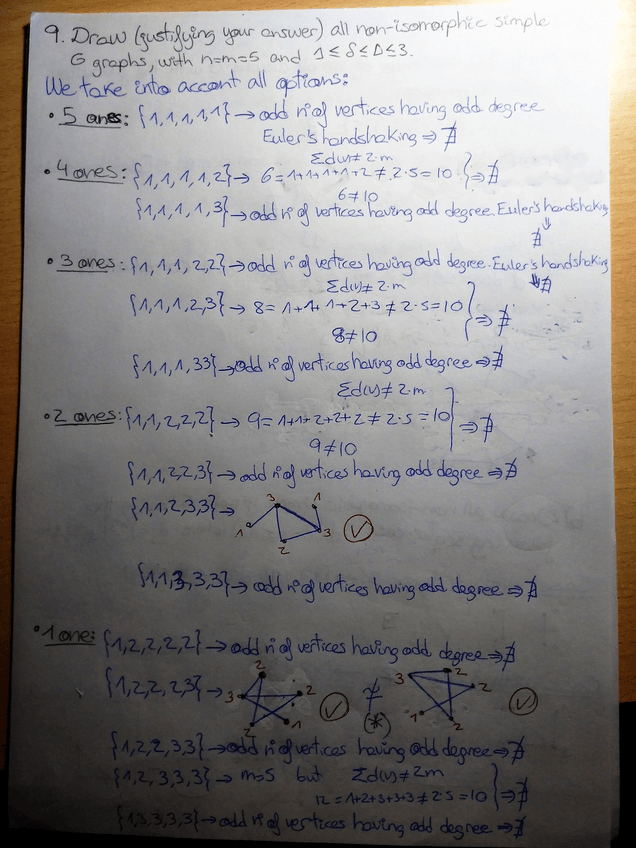 9. Draw (justifying your answer) all non-isomorphic simple
G graphs, with n=m=5 and 1≤δ≤Δ≤3.
We take into account all options:
• 5 ones: {1,1,1,1,1} → odd nº of vertices having odd degree
Euler's handshaking ⇒ ∄
Σd(v)≠2·m
• 4 ones: {1,1,1,1,2} → 6=1+1+1+1+2≠2·5=10 } ⇒ ∄
6≠10
{1,1,1,1,3} → odd nº of vertices having odd degree. Euler's handshaking
⇓
∄
• 3 ones: {1,1,1,2,2} → odd nº of vertices having odd degree. Euler's handshaking
Σd(v)≠2·m ⇓∄
{1,1,1,2,3} → 8=1+1+1+2+3≠2·5=10 } ⇒ ∄
8≠10
{1,1,1,33} → odd nº of vertices having odd degree ⇒ ∄
Σd(v)≠2·m
• 2 ones: {1,1,2,2,2} → 9=1+1+2+2+2≠2·5=10 } ⇒ ∄
9≠10
{1,1,2,2,3} → odd nº of vertices having odd degree ⇒ ∄
3 1
{1,1,2,3,3} →
1 3
2
{1,1,3,3,3} → odd nº of vertices having odd degree ⇒ ∄
• 1 one: {1,2,2,2,2} → odd nº of vertices having odd degree ⇒ ∄
2 3 2
{1,2,2,2,3} → 3 2 ≄ 2
1 (*) 1
2 2
{1,2,2,3,3} → odd nº of vertices having odd degree ⇒ ∄
{1,2,3,3,3} → m=5 but Σd(v)≠2m
12=1+2+3+3+3≠2·5=10 } ⇒ ∄
{1,3,3,3,3} → odd nº of vertices having odd degree ⇒ ∄